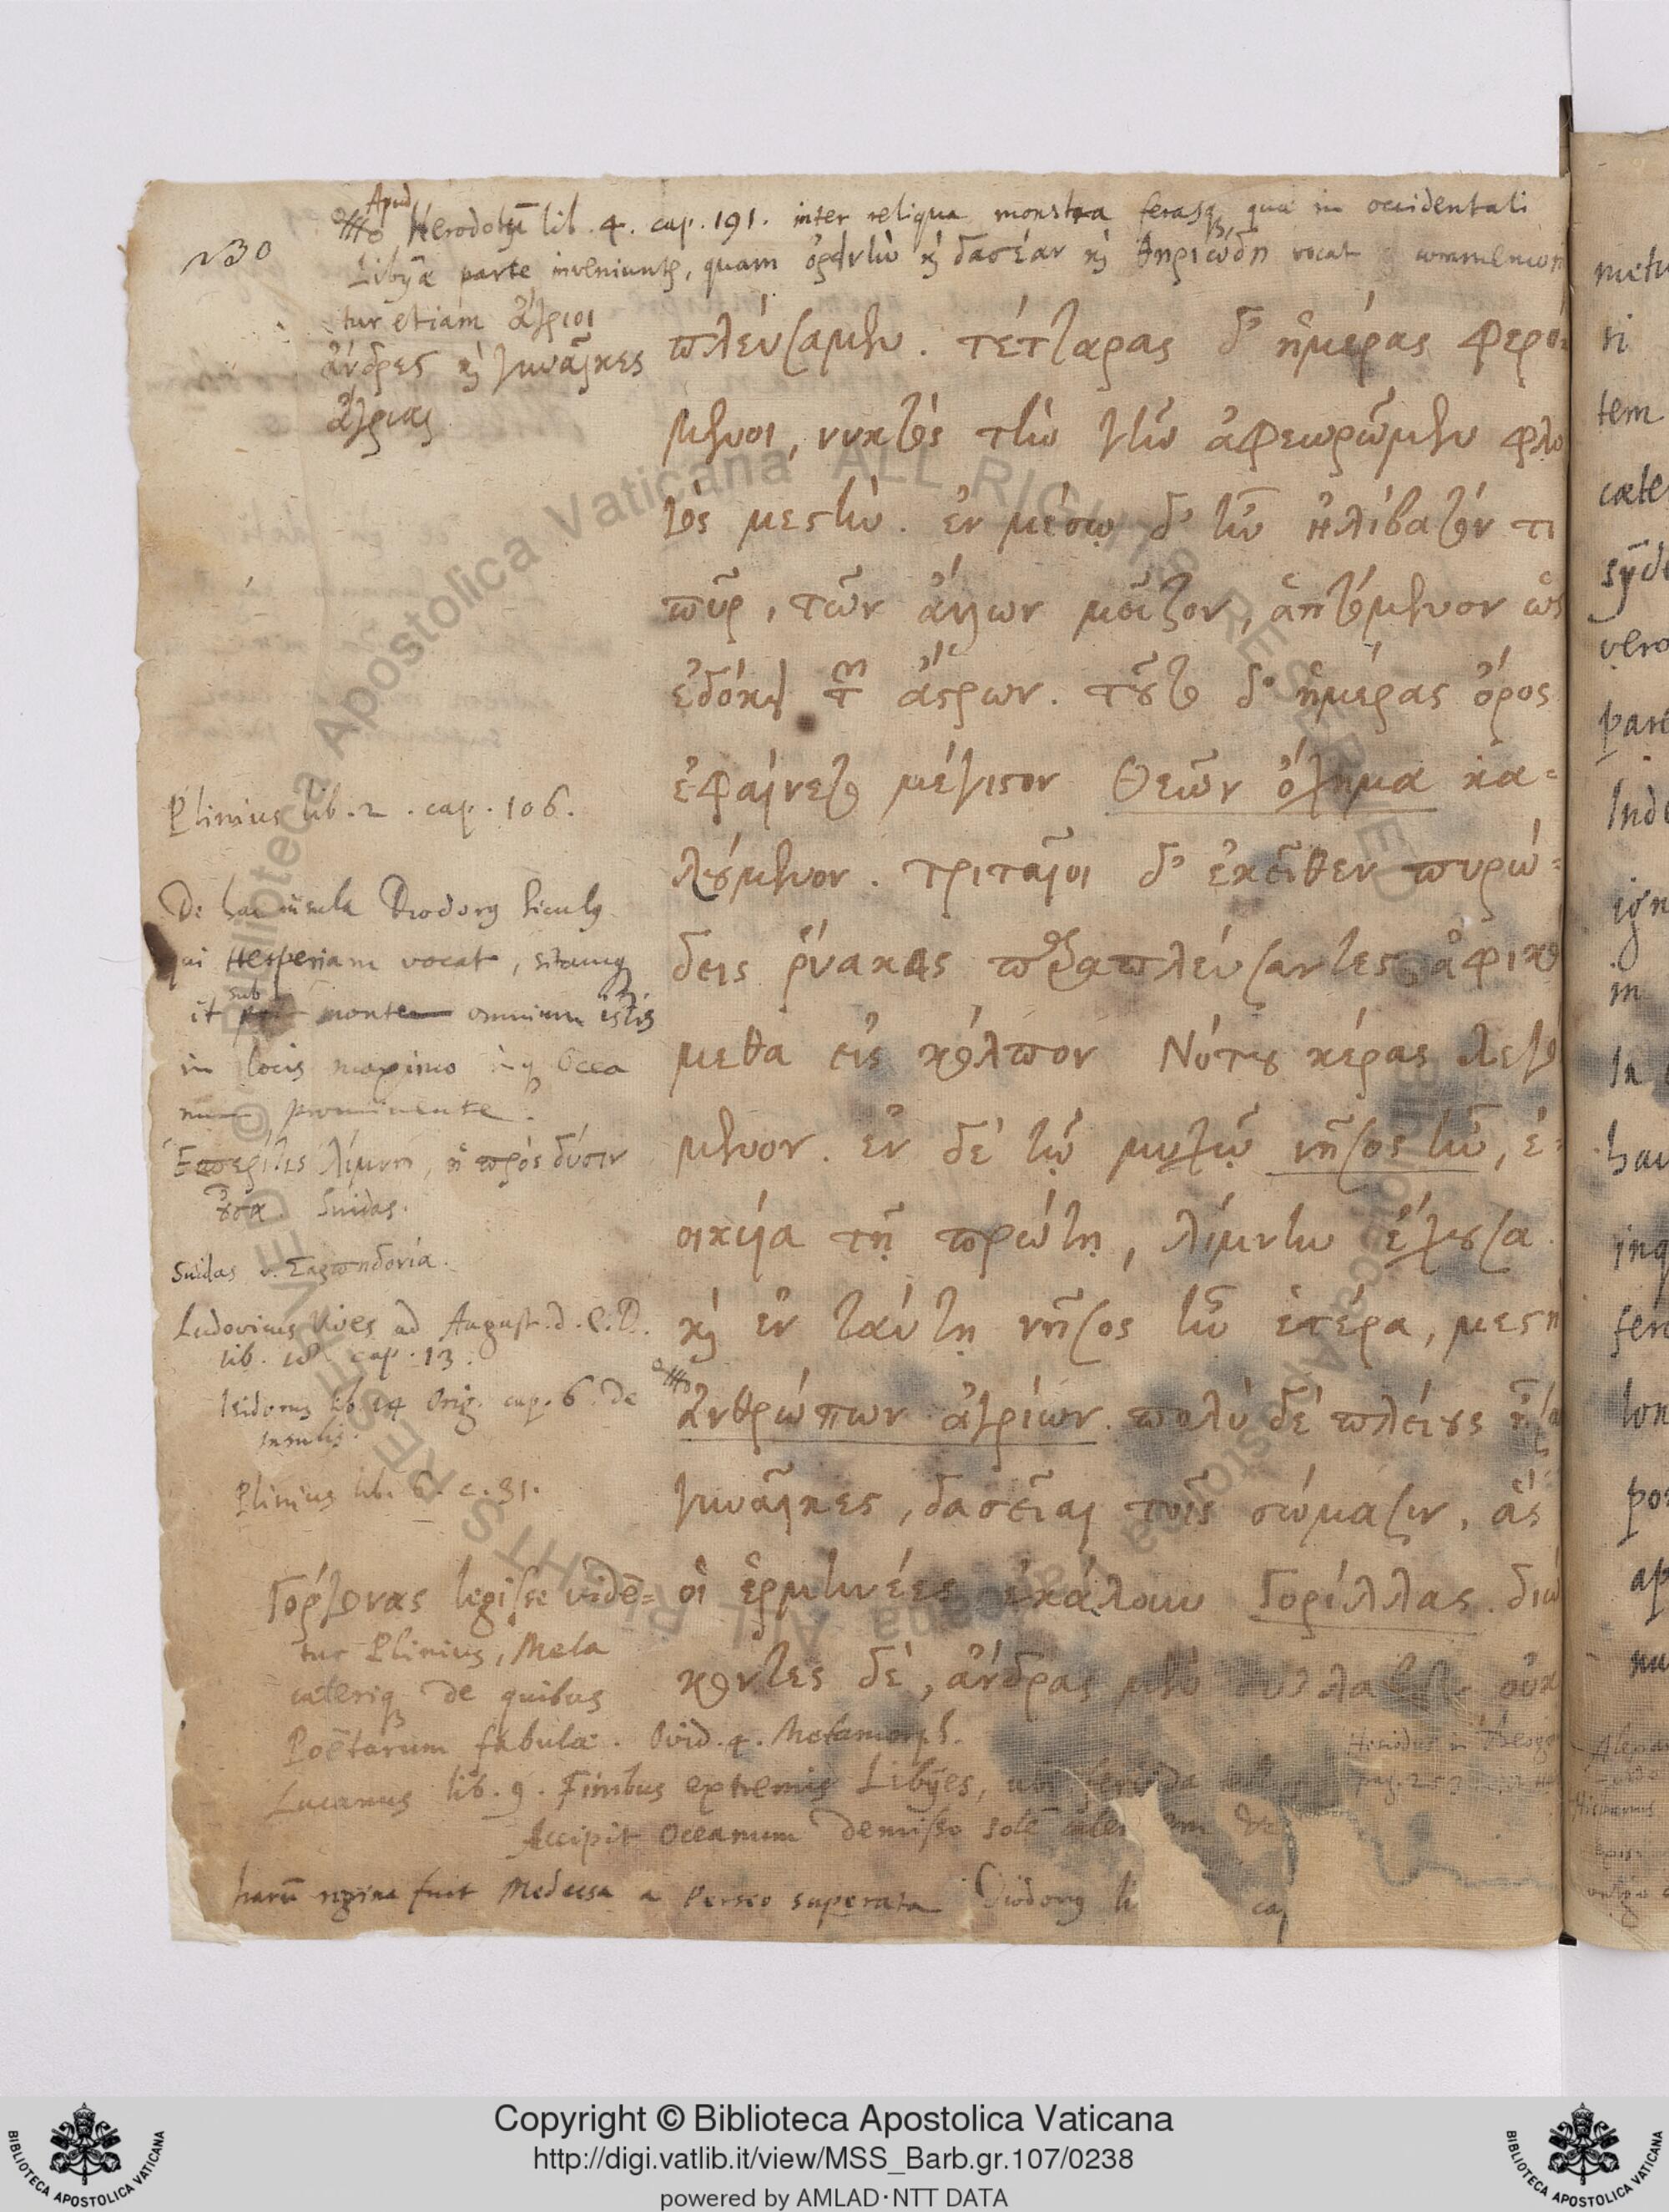 Apud
Herodotũ lib. 4. cap. 191. inter reliqua monstra ferasq, quæ in occidentali
230
Libyæ parte inveniunt, quam ὀρεινὴν κ δασέαν κ θηριώδη vocat
tur etiam ἄγριοι
ἄνδρες κ γυναῖκες
ἄγριαι
πλεύσαμεν. τέτταρας δ' ἡμέρας φερό
μενοι, νυκτὸς τὴν γῆν ἀφεωρῶμεν φλο
γὸς μεστὴν. ἐν μέσῳ δ' ἦν ἠλίβατόν τι
πῦρ, τῶν ἄλλων μεῖζον, ἁπτόμενον ὡς
ἐδόκει τ ἄστρων. τοῦτο δ' ἡμέρας ὄρος
ἐφαίνετο μέγιστον Θεῶν ὄχημα κα=
λούμενον. τριταῖοι δ' ἐκεῖθεν πυρώ=
δεις ῥύακας παραπλεύσαντες ἀφικό
μεθα εἰς κόλπον Νότου κέρας λεγό
μενον. ἐν δὲ τῷ μυχῷ νῆσος ἦν, ἐ=
οικυῖα τῇ πρώτῃ, λίμνην ἔχουσα.
κ ἐν ταύτῃ νῆσος ἦν ἑτέρα, μεστὴ
ἀνθρώπων ἀγρίων. πολὺ δὲ πλείους ἦσα
γυναῖκες, δασεῖαι τοῖς σώμασιν, ἃς
οἱ ἑρμηνέες ἐκάλουν Γορίλλας. διώ
κοντες δὲ, ἄνδρας μὲν οὐκ
Plinius lib. 2. cap. 106.
De hac insula Diodorus Siculus
qui Hesperiam vocat, sitamq
it sub monte omnium istis
in locis maximo inq Ocea
num prominente.
Ἑσπερίτες λίμνη, ἡ πρὸς δύσιν
οὖσα. Suidas.
Suidas v. Σαρπηδονία.
Ludovicus Vives ad August. d. C. D.
lib. 18. cap. 13.
Isidorus lib. 14 Orig. cap. 6. de
insulis.
Plinius lib. 6. c. 31.
Γοργόνας legisse vidē=
tur Plinius, Mela
cæteriq de quibus
Poëtarum fabulæ. Ovid. 4. Metamorph.
Lucanus lib. 9. Finibus extremis Libyes, ubi fervida
Accipit Oceanum demisso sole
harũ regina fuit Medusa a Perseo superata Diodorus li
Copyright © Biblioteca Apostolica Vaticana
http://digi.vatlib.it/view/MSS_Barb.gr.107/0238
powered by AMLAD·NTT DATA
BIBLIOTECA APOSTOLICA VATICANA
BIBLIOTECA APOSTOLICA VATICANA